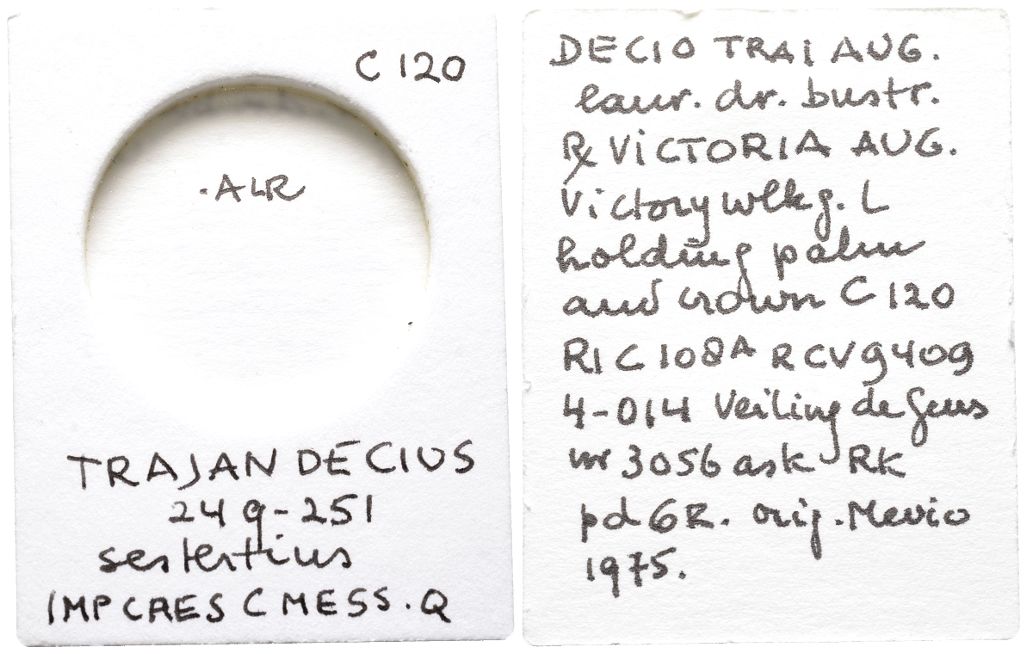 C 120
.ALR
TRAJAN DECIUS
249-251
sestertius
IMP CAES C MESS. Q
DECIO TRAI AUG.
laur. dr. bustr.
℞ ViCTORIA AUG.
Victory wlkg. L
holding palm
and crown C 120
RIC 108A RCV 9409
4-014 Veiling de Geus
nr 3056 ask RK
pd GR. orig. Mevio
1975.